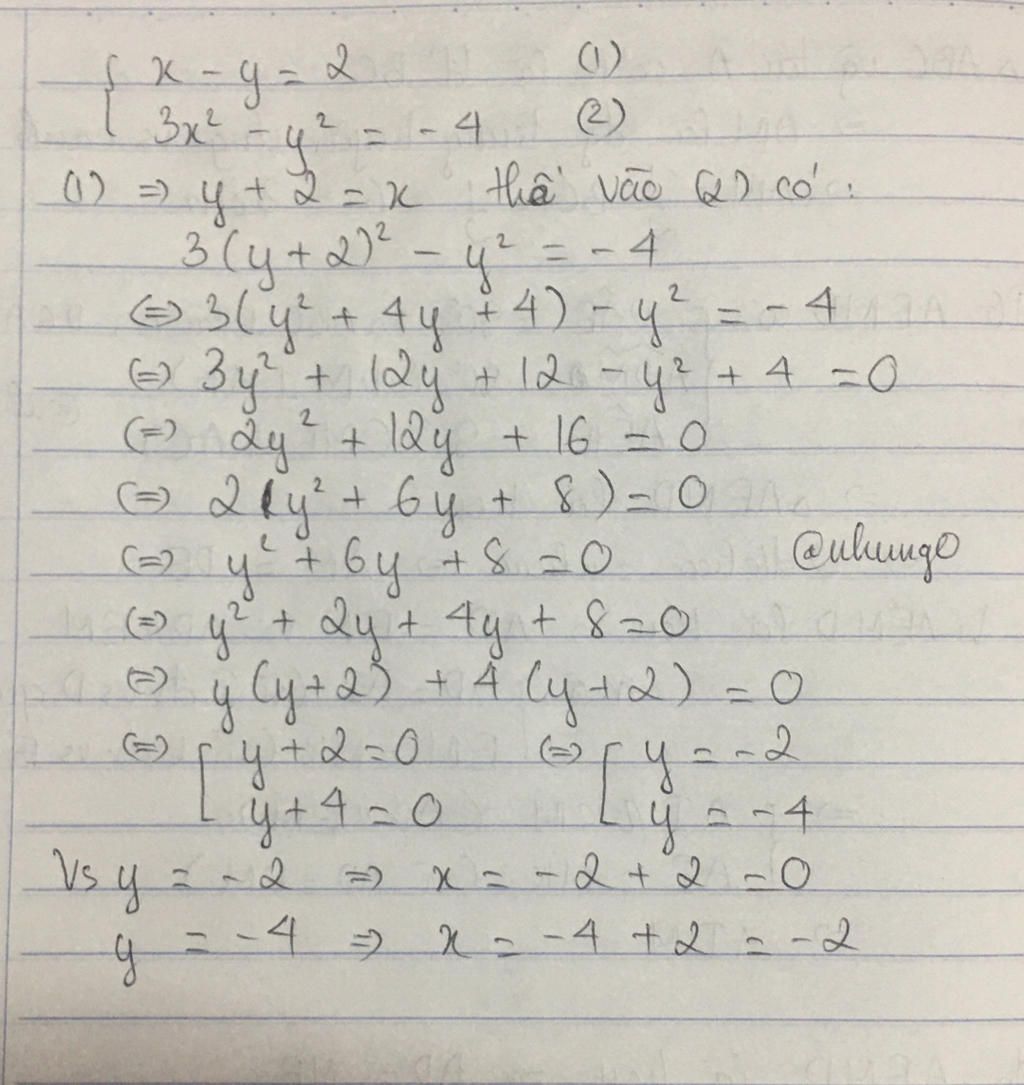 { x - y = 2 (1)
3x² - y² = -4 (2)
(1) => y + 2 = x thế vào (2) có :
3(y + 2)² - y² = -4
(=) 3(y² + 4y + 4) - y² = -4
(=) 3y² + 12y + 12 - y² + 4 = 0
(=) 2y² + 12y + 16 = 0
(=) 2(y² + 6y + 8) = 0
(=) y² + 6y + 8 = 0 @nhung0
(=) y² + 2y + 4y + 8 = 0
(=) y(y+2) + 4(y+2) = 0
(=) [ y + 2 = 0 (=) [ y = -2
y + 4 = 0 y = -4
Vs y = -2 => x = -2 + 2 = 0
y = -4 => x = -4 + 2 = -2